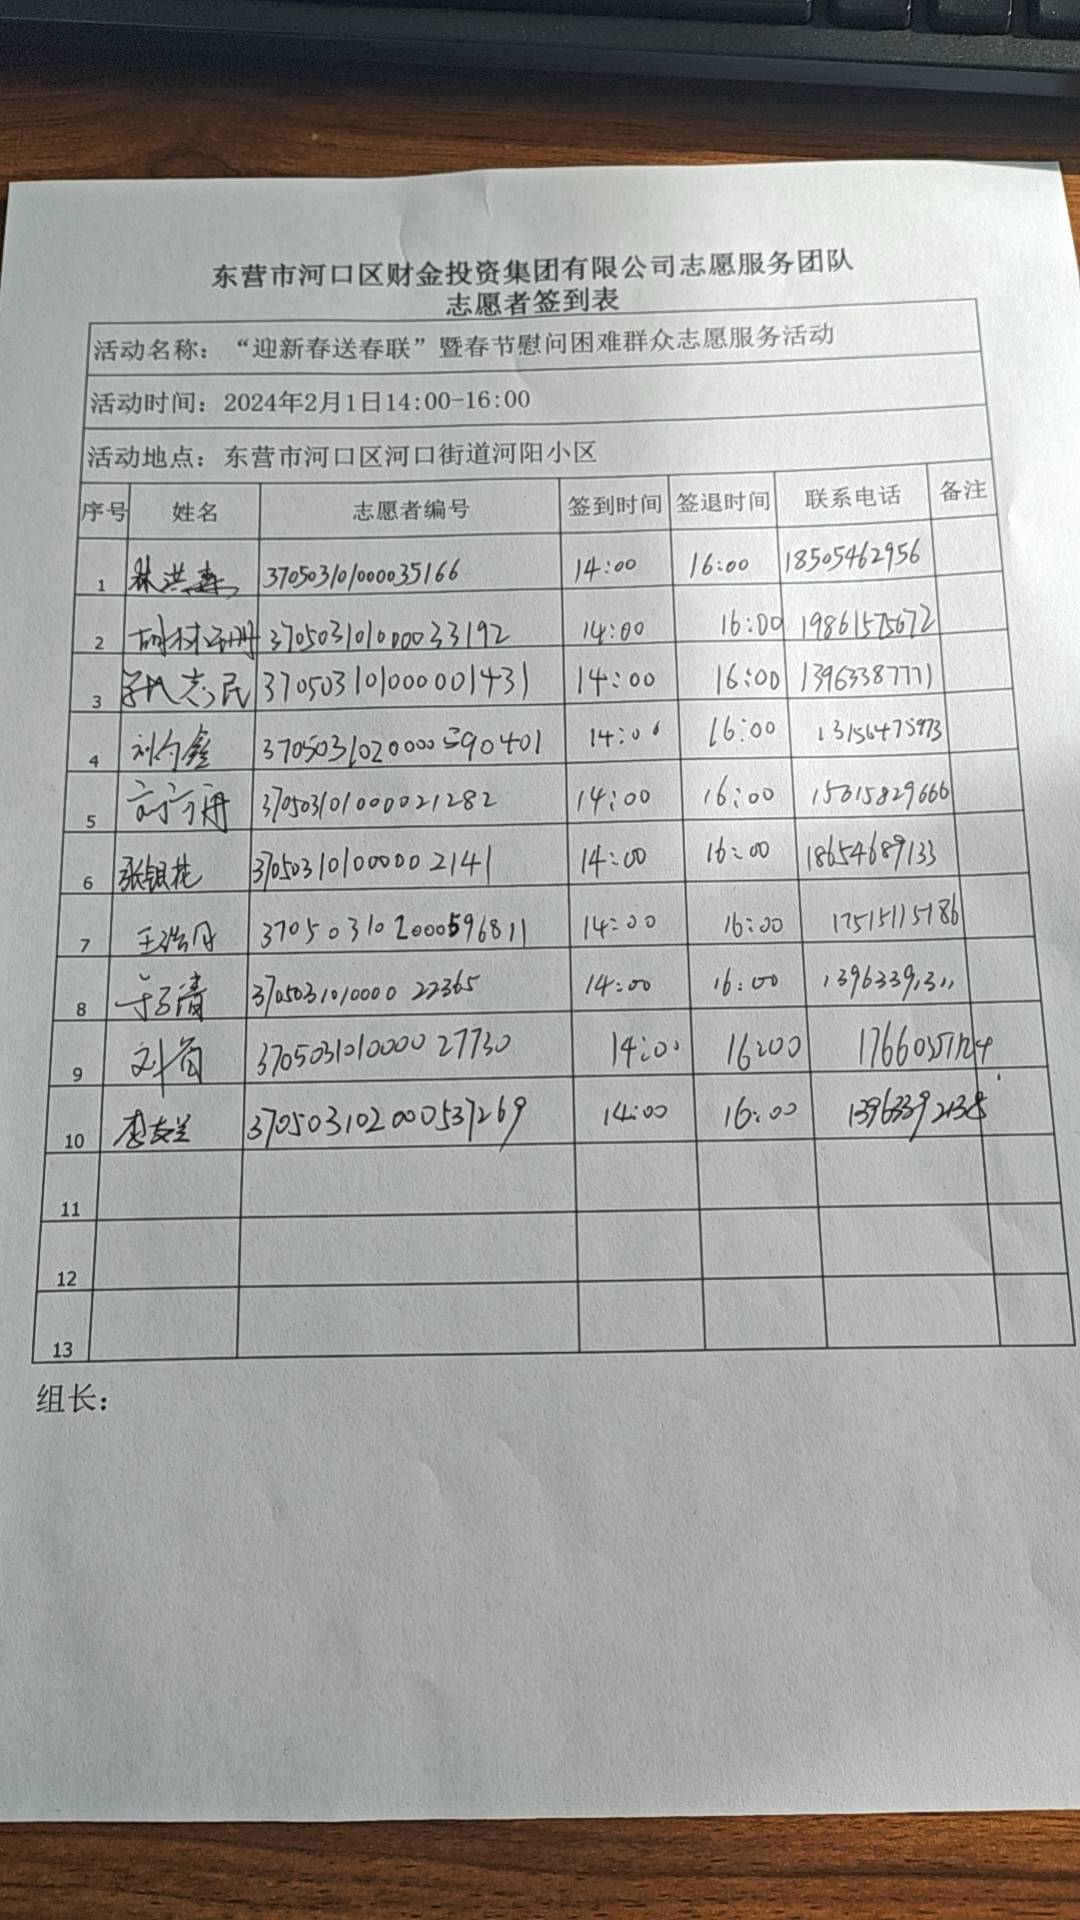 东营市河口区财金投资集团有限公司志愿服务团队
志愿者签到表
活动名称：“迎新春送春联”暨春节慰问困难群众志愿服务活动
活动时间：2024年2月1日14:00-16:00
活动地点：东营市河口区河口街道河阳小区
序号 姓名 志愿者编号 签到时间 签退时间 联系电话 备注
1 林洪森 370503101000035166 14:00 16:00 18505462956
2 370503101000033192 14:00 16:00 19861575672
3 志民 370503101000001431 14:00 16:00 13963387771
4 鑫 14:00 16:00 13156475973
5 370503101000021282 14:00 16:00 15615829666
6 张银花 370503101000002141 14:00 16:00 18654689133
7 王浩丹 370503102000596811 14:00 16:00 17515115186
8 清 370503101000022365 14:00 16:00
9 刘 370503101000027730 14:00 16:00
10 李 370503102000537269 14:00 16:00
11
12
13
组长：